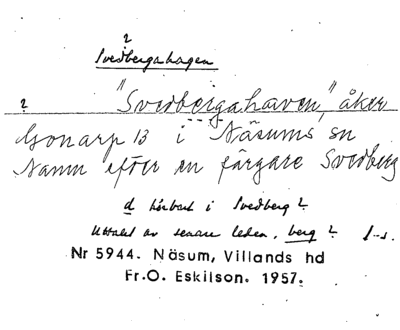 ?
Svedbergahagen
? "Svedbergahaven," åker
Gonarp 13 i Näsums sn
Namn efter en färgare Svedberg
d hörbart i Svedberg?
Uttalet av senare leden, berg?
Nr 5944. Näsum, Villands hd
Fr.O. Eskilson. 1957.